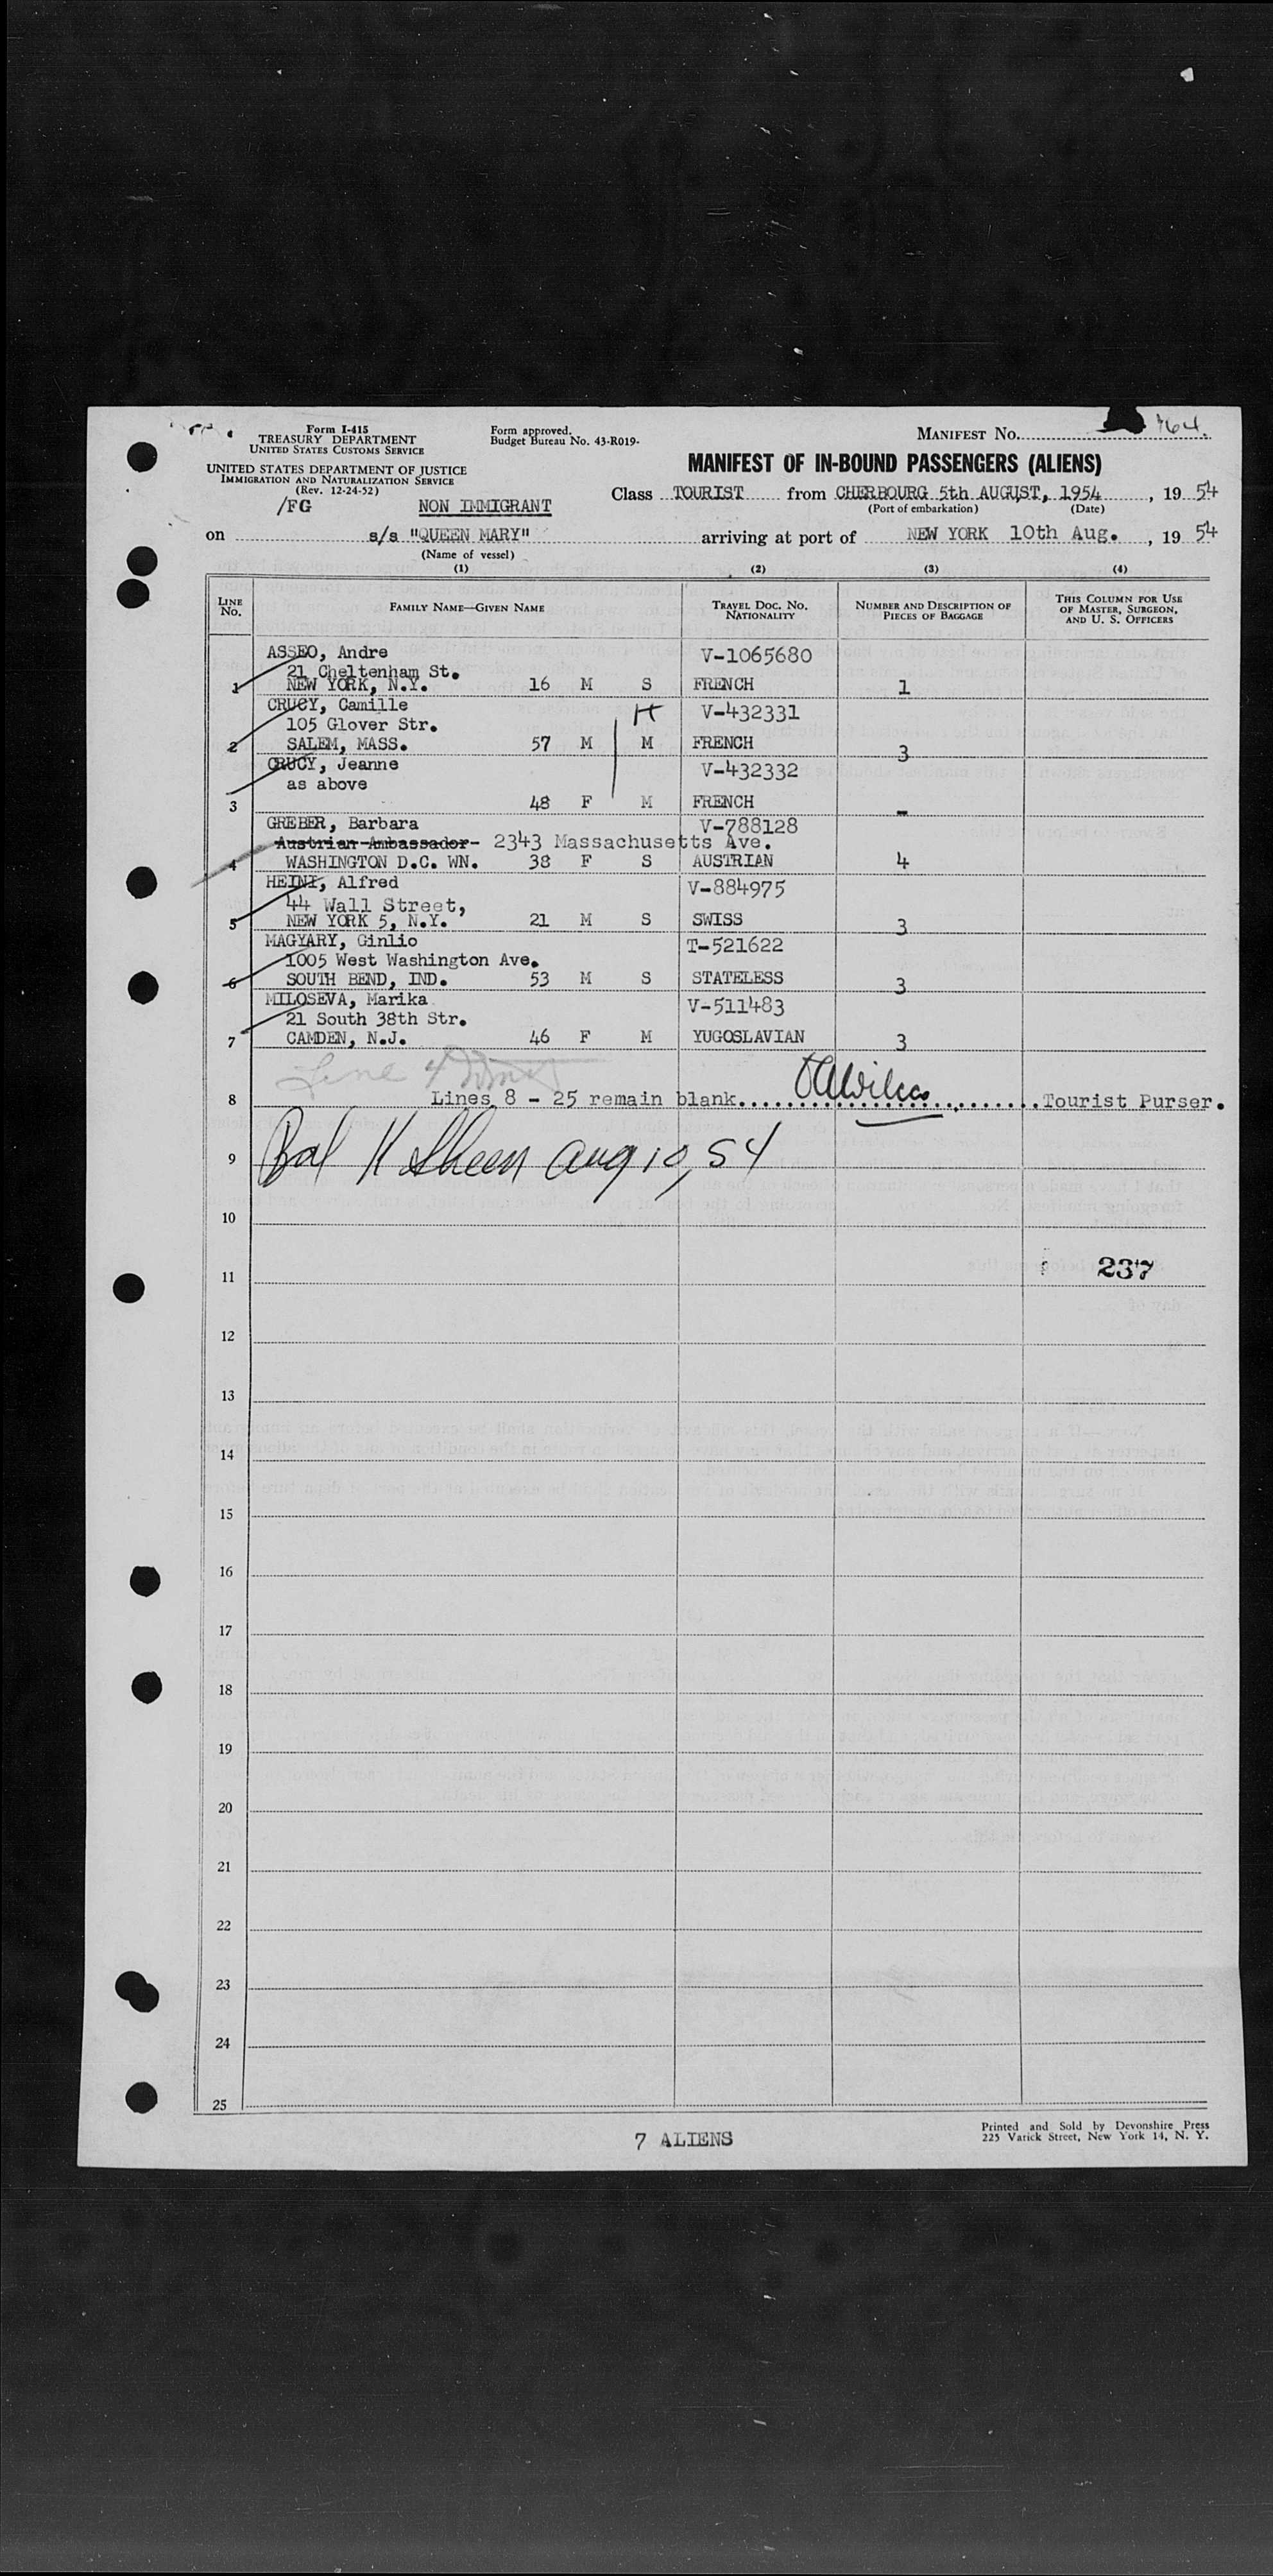 Form I-415
TREASURY DEPARTMENT
UNITED STATES CUSTOMS SERVICE
UNITED STATES DEPARTMENT OF JUSTICE
IMMIGRATION AND NATURALIZATION SERVICE
(Rev. 12-24-52)
Form approved.
Budget Bureau No. 43-R019-
MANIFEST NO. 764.
MANIFEST OF IN-BOUND PASSENGERS (ALIENS)
/FG NON IMMIGRANT
Class TOURIST from CHERBOURG 5th AUGUST, 1954, 19 54
(Port of embarkation) (Date)
on s/s "QUEEN MARY" arriving at port of NEW YORK 10th Aug. , 19 54
(Name of vessel)
(1) (2) (3) (4)
LINE NO. FAMILY NAME—GIVEN NAME TRAVEL DOC. NO. NATIONALITY NUMBER AND DESCRIPTION OF PIECES OF BAGGAGE THIS COLUMN FOR USE OF MASTER, SURGEON, AND U. S. OFFICERS
ASSEO, Andre V-1065680
21 Cheltenham St.
1 NEW YORK, N.Y. 16 M S FRENCH 1
CRUCY, Camille H V-432331
105 Glover Str.
2 SALEM, MASS. 57 M M FRENCH 3
CRUCY, Jeanne V-432332
as above
3 48 F M FRENCH -
GREBER, Barbara V-788128
Austrian Ambassador- 2343 Massachusetts Ave.
4 WASHINGTON D.C. WN. 38 F S AUSTRIAN 4
HEINI, Alfred V-884975
44 Wall Street,
5 NEW YORK 5, N.Y. 21 M S SWISS 3
MAGYARY, Ginlio T-521622
1005 West Washington Ave.
6 SOUTH BEND, IND. 53 M S STATELESS 3
MILOSEVA, Marika V-511483
21 South 38th Str.
7 CAMDEN, N.J. 46 F M YUGOSLAVIAN 3
Line 4
8 Lines 8 - 25 remain blank. Tourist Purser.
9 Aug 10, 54
10
11 237
12
13
14
15
16
17
18
19
20
21
22
23
24
25
7 ALIENS
Printed and Sold by Devonshire Press
225 Varick Street, New York 14, N. Y.